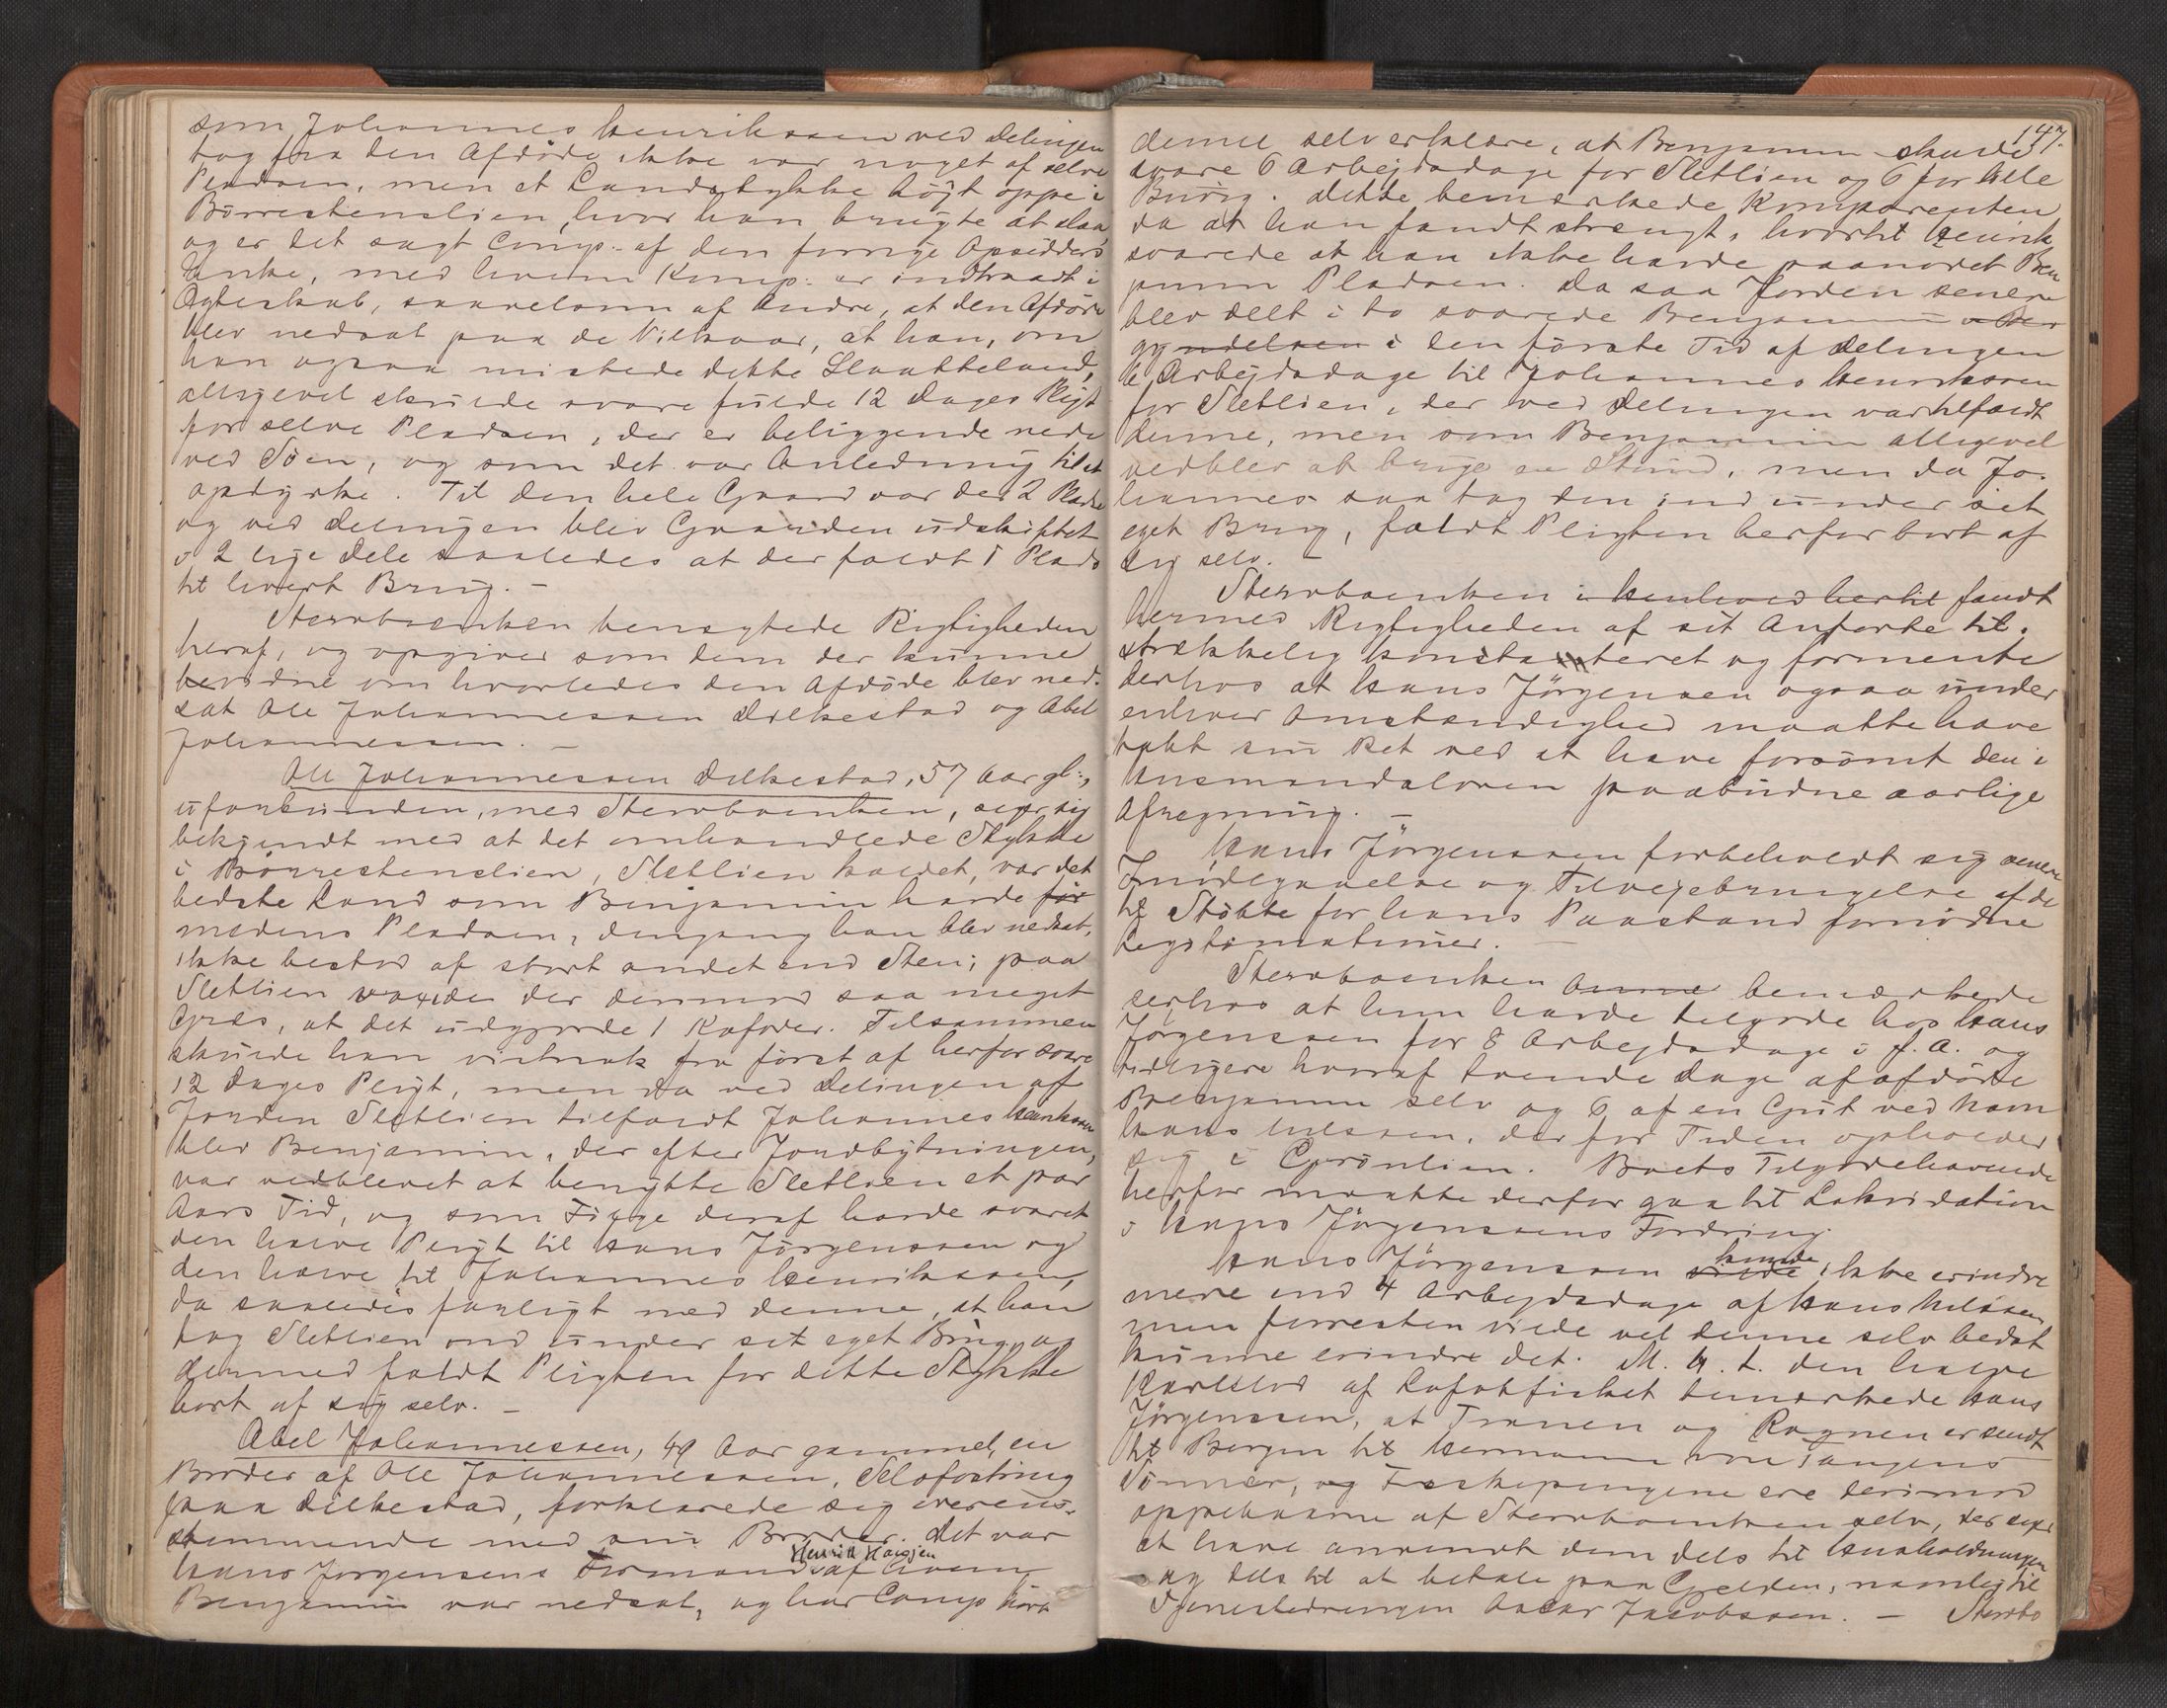 som Johannes Henrikssen ved Delingen
tog fra den Afdøde ikke var noget af selve
Pladsen, men et Landstykke høit oppe i
Börrestenslien, hvor han brugte at slaa,
og er det sagt Comp. af den forrige Opsidders
Enke, med hvem Komp. er indtraadt i
Ægteskab, saavelsom af Andre, at den Afdøde
blev nedsat paa de Vilkaar, at han, om
han ogsaa mistede dette Slaatteland,
alligevel skulde svare fulde 12 Dages Pligt
for selve Pladsen, der er beliggende nede
ved Söen, og som det var Anledning til at
opdyrke. Til den hele Gaard var der 2 Pladse
og ved Delingen blev Gaarden udskiftet
i 2 lige Dele saaledes at der faldt 1 Plads
til hvert Brug. –
Stervboenken benegtede Rigtigheden
heraf, og opgiver som dem der kunne
bevidne om hvorledes den Afdøde blev ned-
sat Ole Johannessen Dilkestad og Abel
Johannessen. –
Ole Johannessen Dilkestad, 57 Aar gl.,
uforbunden, med Stervboenken, siger sig
bekjendt med at det omhandlede Stykke
i Börrestenslien, Sletlien kaldet, var det
bedste Land som Benjamin havde før
medens Pladsen, dengang han blev nedsat,
ikke bestod af stort andet end Sten; paa
Sletlien voxede der derimod saa meget
Græs, at det udgjorde 1 Kofoder. Tilsammen
skulde han vistnok fra først af herfor svare
12 Dages Pligt, men da ved Delingen af
Jorden Sletlien tilfaldt Johannes Henrikssen
blev Benjamin, der efter Jordbytningen,
var vedblevet at benytte Sletlien et par
Aars Tid, og som Følge deraf havde svaret
den halve Pligt til Hans Jørgenssen og
den halve til Johannes Henrikssen,
da saaledes forligt med denne, at han
tog Sletlien ind under sit eget Brug, og
dermed faldt Pligten for dette Stykke
bort af sig selv. –
Abel Johannessen, 49 Aar gammel, en
Broder af Ole Johannessen, Selvfostring
paa Dilkestad, forklarede sig overens-
stemmende med sin Broder. Det var
Henrik Hansen
Hans Jørgensens Formand af hvem
Benjamin var nedsat, og har Comp hørt
147.
denne selv erklære, at Benjamin skulde
svare 6 Arbejdsdage for Sletlien og 6 for hele
Burig. Dette bemærkede Komparenten
da at han fandt strengt, hvortil Henrik
svarede at han ikke havde paanødet Ben
jamin Pladsen. Da saa Jorden senere
blev delt i to svarede Benjamin
gyndelsen i den første Tid af Delingen
6 Arbejdsdage til Johannes Henriksen
for Sletlien, der ved Delingen var tilfaldt
denne, men som Benjamin alligevel
vedblev at bruge en Stund, men da Jo-
hannes saa tog den ind under sit
eget Brug, faldt Pligten herfor bort af
sig selv. –
Stervboenken i Henhold hertil fandt
hermed Rigtigheden af sit Anførte til-
strækkelig konstateret og formente
derhos at Hans Jörgensen ogsaa under
enhver Omstændighed maatte have
tabt sin Ret ved at have forsömt den i
Husmandsloven paabudne aarlige
Afregning. –
Hans Jörgenssen forbeholdt sig senere
Imödegaaelse og Tilvejebringelse af de
til Støtte for hans Paastand fornødne
Legitimationer. –
Stervboenken Anne bemærkede
derhos at hun havde tilgode hos Hans
Jørgenssen for 8 Arbejdsdage i f. A. og
tidligere hvoraf tvende Dage af afdøde
Benjamin selv og 6 af en Gut ved Navn
Hans Nilssen, der for Tiden opholder
sig i Grönlien. Boets Tilgodehavende
herfor maatte derfor gaa til Likvidation
i Hans Jörgenssens Fordring.
kunde
Hans Jørgenssen vilde ikke erindre
mere end 4 Arbejdsdage af Hans Nilssen
men forresten vilde vel denne selv bedst
kunne erindre det. M. H. t. den halve
Karlslod af Lofotfisket bemærkede Hans
Jørgenssen, at Tranen og Rognen er sendt
til Bergen til Hermann von Tangens
Sönner, og Fiskepengene ere derimod
oppebaarne af Stervboenken selv, der siger
at have anvendt dem dels til Husholdningen
og dels til at betale paa Gjelden, nemlig til
Tjenestedrengen Oskar Jacobssen. – Stervbo